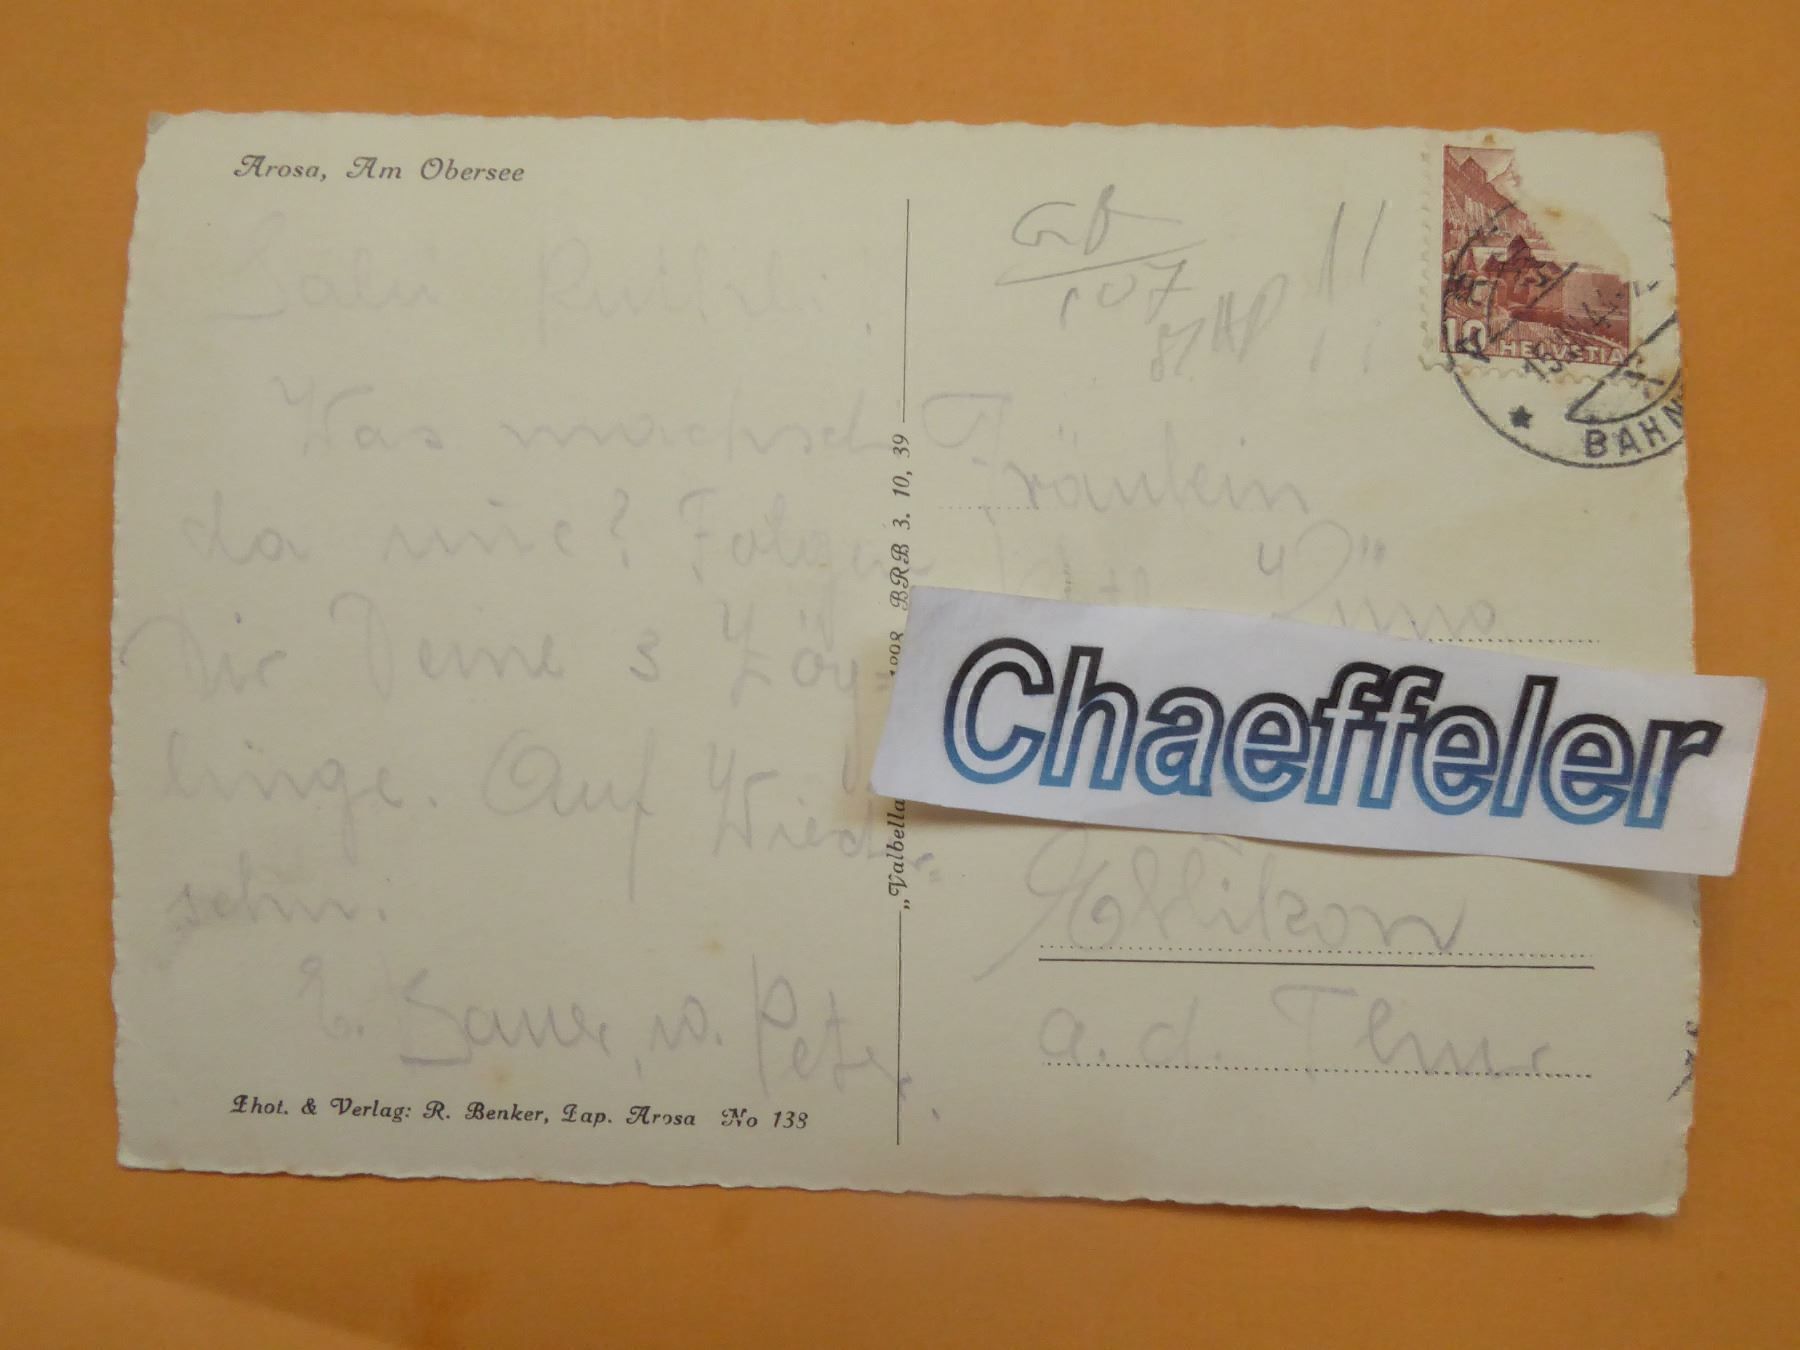 Arosa, Am Obersee
Salü
Was machsch
da mir? Folgen
Dir Deine 3 Zög=
linge. Auf Wieder=
sehn.
E. Saner, w. Peter.
Phot. & Verlag: R. Benker, Pap. Arosa No 138
"Valbella 1908 BRB 3. 10, 39
GB
107
!!
10 HELVETIA
BAHN
Fräulein
Chaeffeler
Ellikon
a. d. Thur